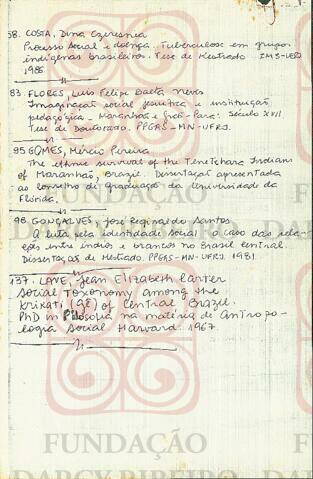 58. COSTA, Dina Czeresnia
Processo Social e doença. Tuberculose em grupos
indígenas brasileiros. Tese de Mestrado IMS-UERJ
1985
83. FLORES, Luis Felipe Baêta Neves
Imaginação social jesuítica e instituição
pedagógica - Maranhão e Grão-Pará: Século XVII
Tese de Doutorado. PPGAS-MN-UFRJ.
95 GOMES, Mércio Pereira
The ethnic survival of the Tenetehara Indians
of Maranhão, Brazil. Dissertação apresentada
ao conselho de graduação da Universidade da
Flórida.
98. GONÇALVES, José Reginaldo Santos
A luta pela identidade social: o caso das rela-
ções entre índios e brancos no Brasil Central.
Dissertação de Mestrado. PPGAS-MN-UFRJ. 1981.
137. LAVE, Jean Elizabeth Carter
Social Toxonomy among the
Krikati (gê) of Central Brazil.
PhD in Filosofia na matéria de Antropo-
logia Social Harvard. 1967
FUNDAÇÃO
DARCY RIBEIRO
FUNDAÇÃO
DARCY RIBEIRO